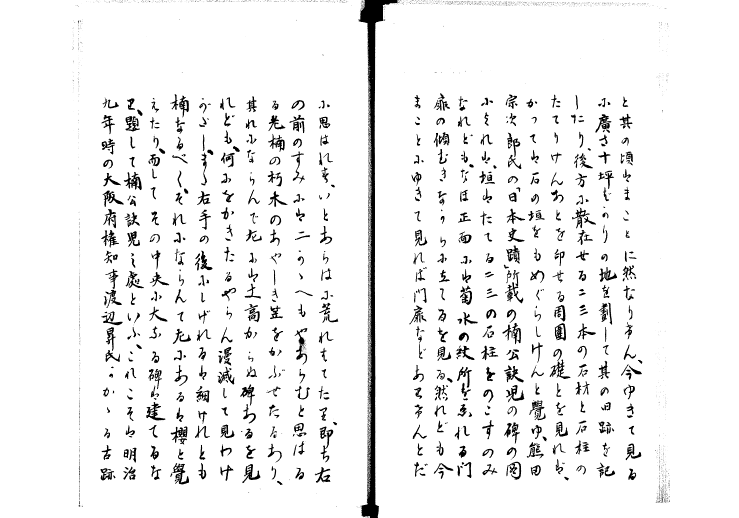 と其の頃はまことに然なりけん、今ゆきて見る
に廣さ十坪ばかりの地を劃して其の旧跡を記
したり、後方に散在せる二三本の石材と石柱の
たてりけんあとを印せる周囲の礎とを見れば、
かつては石の垣をもめぐらしけんと覺ゆ、熊田
宗次郎氏の『日本史蹟』所載の楠公訣児の碑の図
にそれは、垣はたてる二三の石柱をのこすのみ
なれども、なほ正面には菊水の紋所を彫れる門
扉の傾むきながらに立てるを見る、然れども今
まことにゆきて見れば門扉などあるけんとだ
に思はれず、いとあらはに荒れはてたり、即ち右
の前のすみには二かゝへもやあらむと思はる
る老楠の朽木のあやしき笠をかぶせたるあり、
其れにならんで左には土高からぬ碑あるを見
れども、何にをかきたるやらん漫滅して見わけ
がたし、また右手の後にしげれるは細けれとも
楠なるべく、それにならんて左にあるは櫻と覺
えたり、而してその中央に大なる碑は建てるな
り、題して楠公訣児之處といふ、これこそは明治
九年時の大阪府権知事渡辺昇氏がかゝる古跡